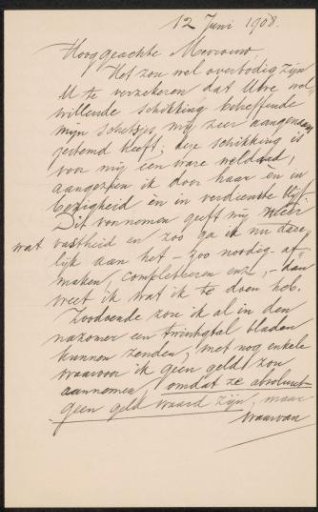 12 Juni 1908.
Hooggeachte Mevrouw
Het zou wel overbodig zijn
U te verzekeren dat Uwe wel-
willende schikking betreffende
mijn schetsjes mij zeer aangenaam
gestemd heeft; deze schikking is
voor mij een ware weldaad,
aangezien ik door haar en in
bezigheid en in verdienste blijf.
Dit voornemen geeft mij
wat vastheid en zoo ga ik nu dade
lijk aan het - zoo noodig - af-
maken, completeeren enz, - dan
weet ik wat ik te doen heb.
Zoodoende zou ik al in den
nazomer een twintigtal bladen
kunnen zenden, met nog enkele
waarvoor ik geen geld zou
aannemen, omdat ze absoluut
geen geld waard zijn, maar
waarvan